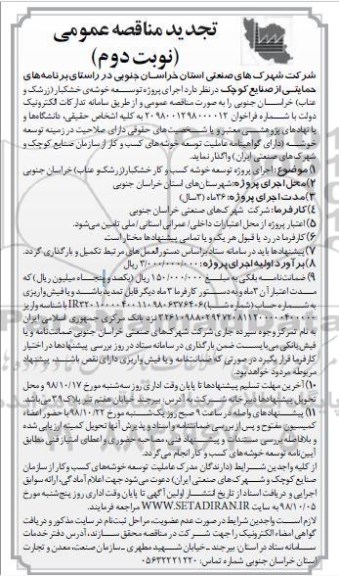 تجدید مناقصه عمومی
(نوبت دوم)
شرکت شهرک های صنعتی استان خراسان جنوبی در راستای برنامه‌های
حمایتی از صنایع کوچک در نظر دارد اجرای پروژه توسعه خوشه‌ی خشکبار (زرشک و
عناب) خراسان جنوبی را به صورت مناقصه عمومی و از طریق سامانه تدارکات الکترونیک
دولت با شماره فراخوان به کلیه اشخاص حقیقی، دانشگاه‌ها و
یا نهادهای پژوهشی معتبر و یا شخصیت‌های حقوقی دارای صلاحیت در زمینه توسعه
خوشه (دارای گواهینامه عاملیت توسعه خوشه‌های کسب و کار از سازمان صنایع کوچک و
شهرک‌های صنعتی ایران) واگذار نماید.
۱) موضوع: اجرای پروژه توسعه خوشه کسب و کار خشکبار (زرشک و عناب) خراسان جنوبی
۲) محل اجرای پروژه: شهرستان‌های استان خراسان جنوبی
۳) مدت اجرای پروژه: ۳۶ماه (۳سال)
۴) کارفرما: شرکت شهرک‌های صنعتی خراسان جنوبی
۵) اعتبار پروژه از محل اعتبارات داخلی/ عمرانی استانی/ ملی تامین می‌شود.
۶) کارفرما در رد یا قبول هر یک و یا تمامی پیشنهادها مختار است.
۷) پیشنهادها باید در سامانه ستاد براساس دستورالعمل‌های مرتبط تکمیل و بارگذاری گردد.
۸) برآورد اولیه اجرای پروژه: ۳/۰۰۰/۰۰۰/۰۰۰ ریال
۹) ضمانت‌نامه بانکی به مبلغ ۱۵۰/۰۰۰/۰۰۰ ریال (یکصد و پنجاه میلیون ریال) که
مدت اعتبار آن ۳ماه و به دستور کارفرما ۳ماه دیگر قابل تمدید باشد و یا فیش واریزی
به شماره حساب (شماره شبا) با شناسه واریز
نزد بانک مرکزی جمهوری اسلامی ایران
به نام تمرکز وجوه سپرده جاری شرکت شهرک‌های صنعتی خراسان جنوبی ضمانت‌نامه و یا
فیش بانکی می‌بایست ضمن بارگذاری در سامانه ستاد در روز بررسی پیشنهادها در اختیار
کارفرما قرار بگیرد در صورتی که ضمانت‌نامه و یا فیش واریزی دارای نقص باشد، پیشنهاد
مربوطه مردود خواهد بود.
۱۰) آخرین مهلت تسلیم پیشنهادها تا پایان وقت اداری روز سه‌شنبه مورخ ۹۸/۱۰/۱۷ و محل
تحویل پیشنهادها دبیرخانه شرکت به آدرس: بیرجند خیابان هفتم تیر پلاک ۲۹ می‌باشد
۱۱) پیشنهادهای واصله در ساعت ۹ صبح روز یک‌شنبه مورخ ۹۸/۱۰/۲۲ با حضور اعضاء
کمیسیون مفتوح و پس از بررسی ضمانتنامه و اسناد و پذیرش آنها تحویل کمیته ارزیابی شده
و بلافاصله بررسی مستندات و پیشنهاد فنی، مصاحبه حضوری و اعطای امتیاز فنی مطابق
آیین‌نامه توسعه خوشه‌های کسب و کار انجام می‌گردد.
از کلیه واجدین شرایط (دارندگان مدرک عاملیت توسعه خوشه‌های کسب و کار از سازمان
صنایع کوچک و شهرک‌های صنعتی ایران) دعوت می‌شود جهت اعلام آمادگی، ارائه سوابق
اجرایی و دریافت اسناد از تاریخ انتشار اولین آگهی تا پایان وقت اداری روز پنج‌شنبه مورخ
۹۸/۱۰/۰۵ به سایت WWW.SETADIRAN.IR مراجعه فرمایند.
لازم است واجدین شرایط در صورت عدم عضویت، مراحل ثبت‌نام در سایت مذکور و دریافت
گواهی امضاء الکترونیک را جهت شرکت در مناقصه محقق سازند، آدرس دفتر خدمات
سامانه ستاد در استان: بیرجند - خیابان شهید مطهری - سازمان صنعت، معدن و تجارت
استان خراسان جنوبی. شماره تماس: ۰۵۶۳۲۲۲۱۲۲۰